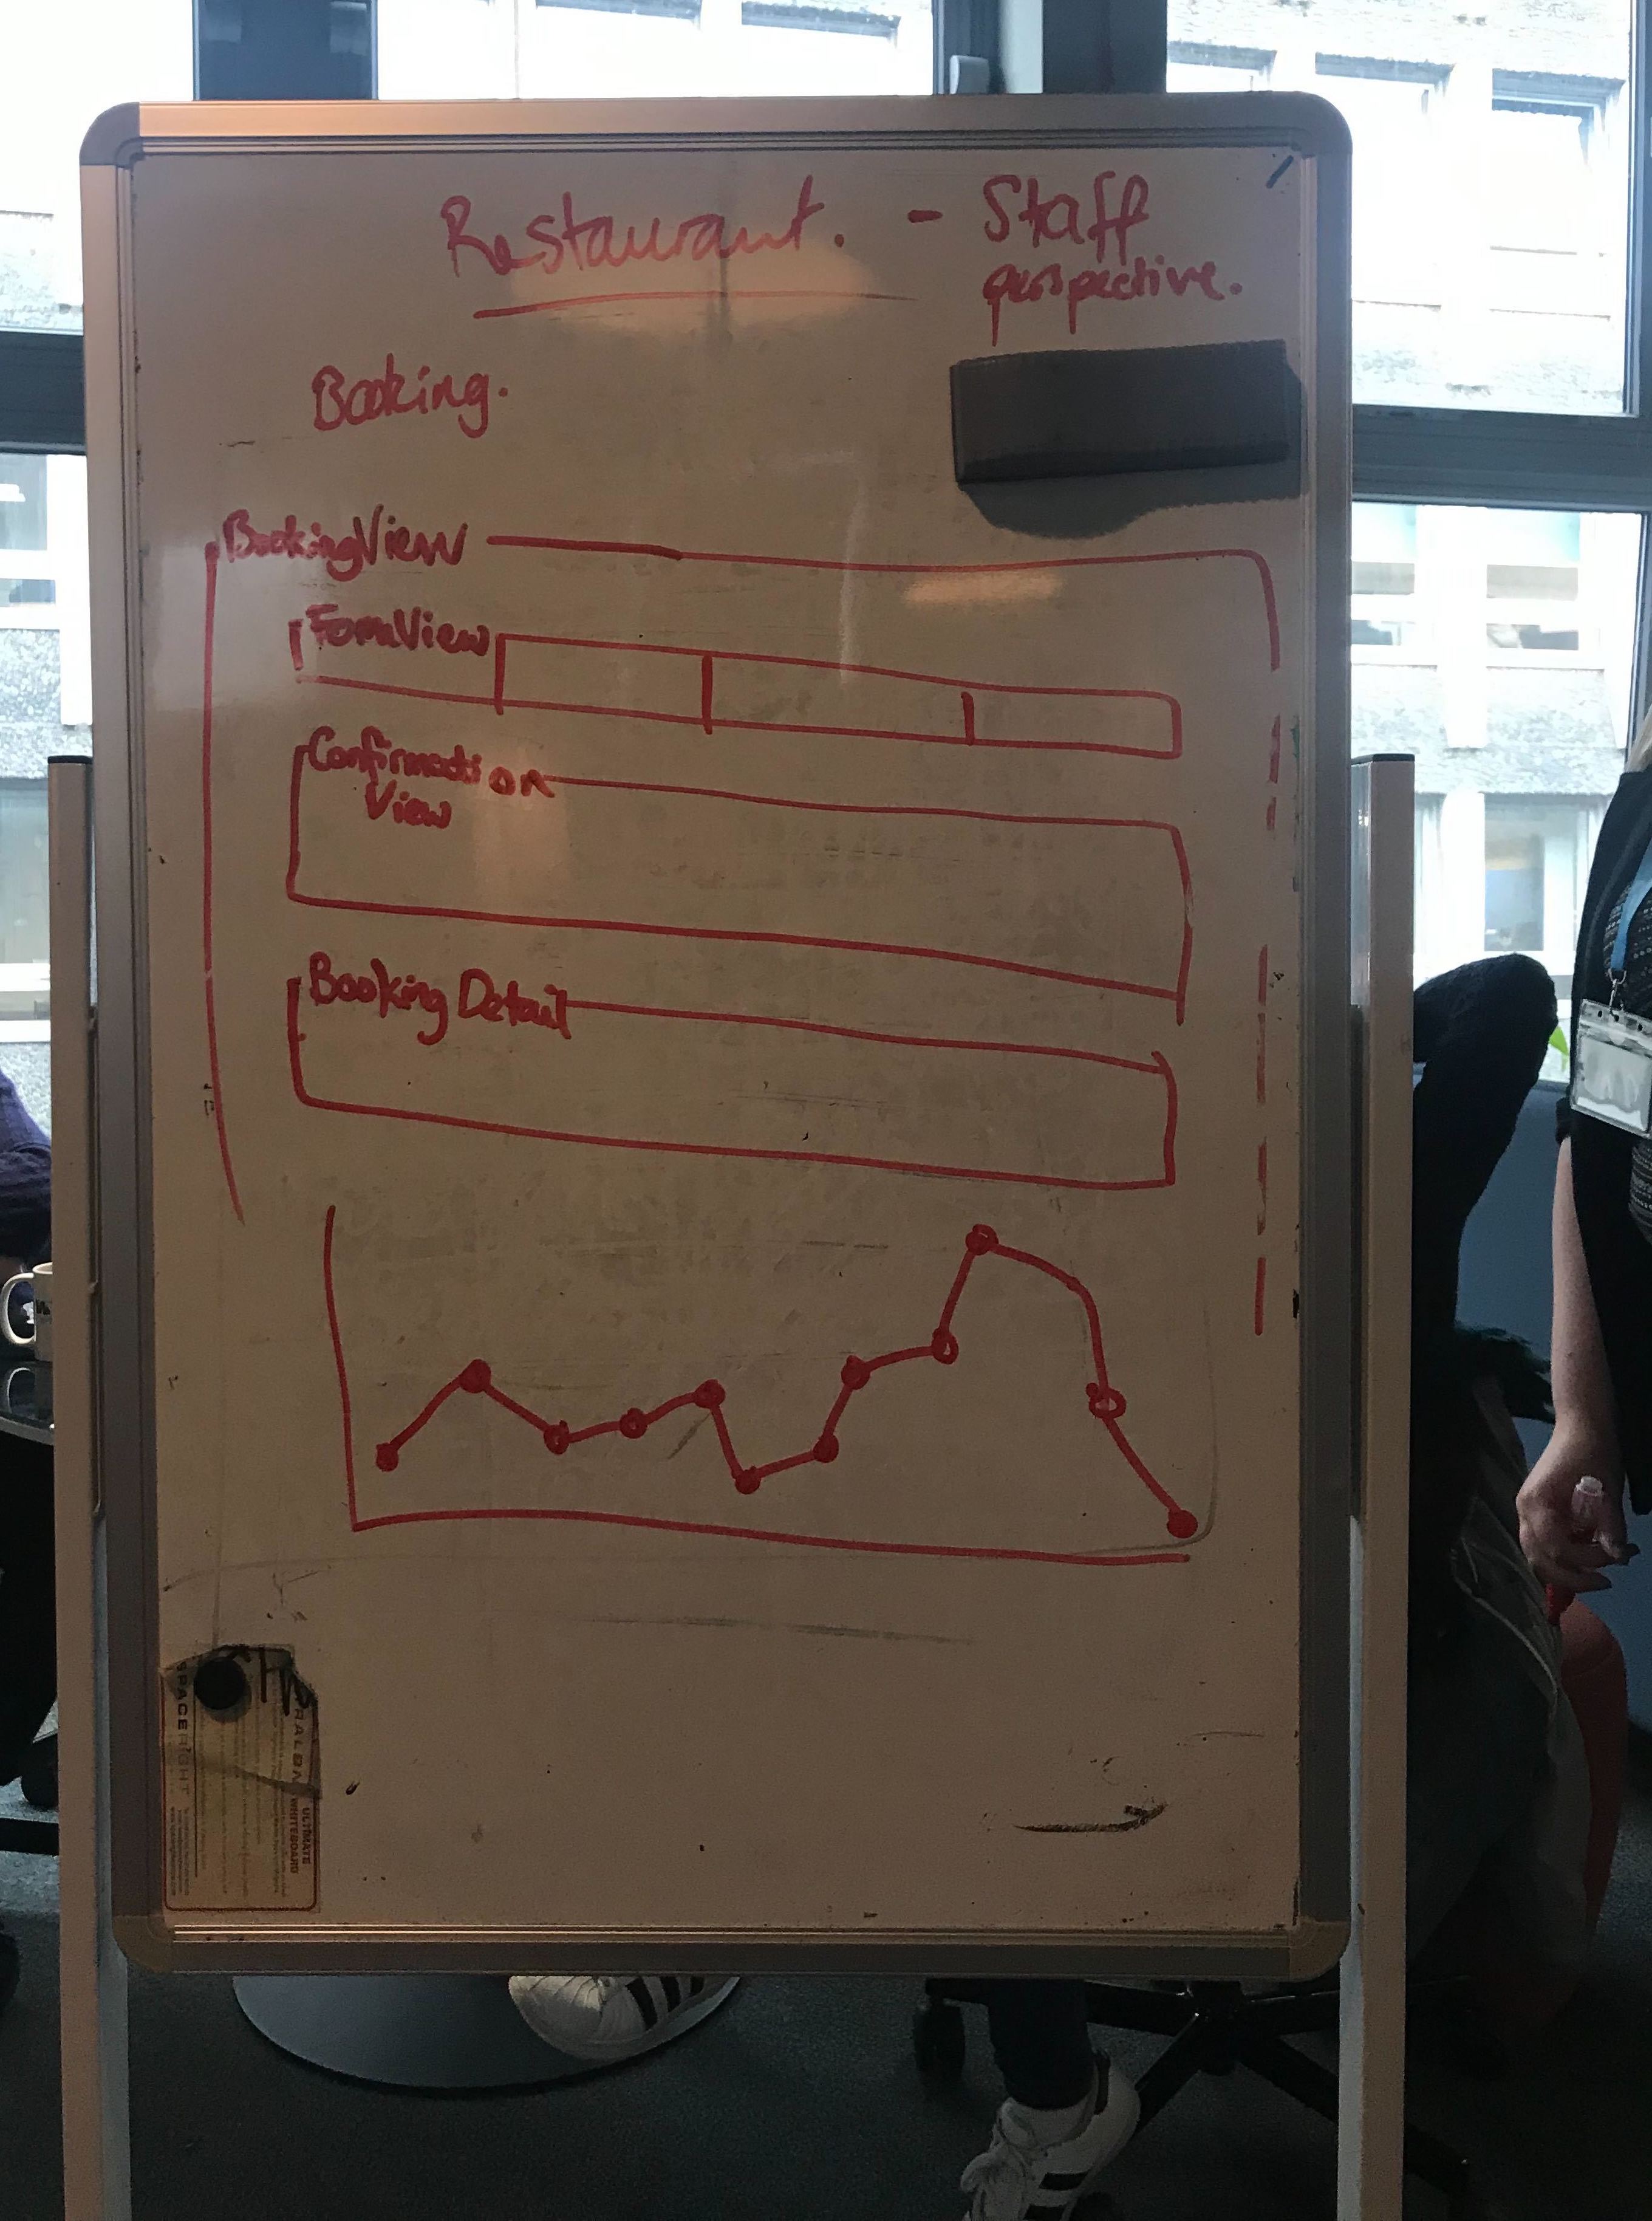 Restaurant. - Staff
perspective.
Booking.
BookingView
FormView
Confirmation
View
Booking Detail
SPACERIGHT
ULTIMATE
WHITEBOARD